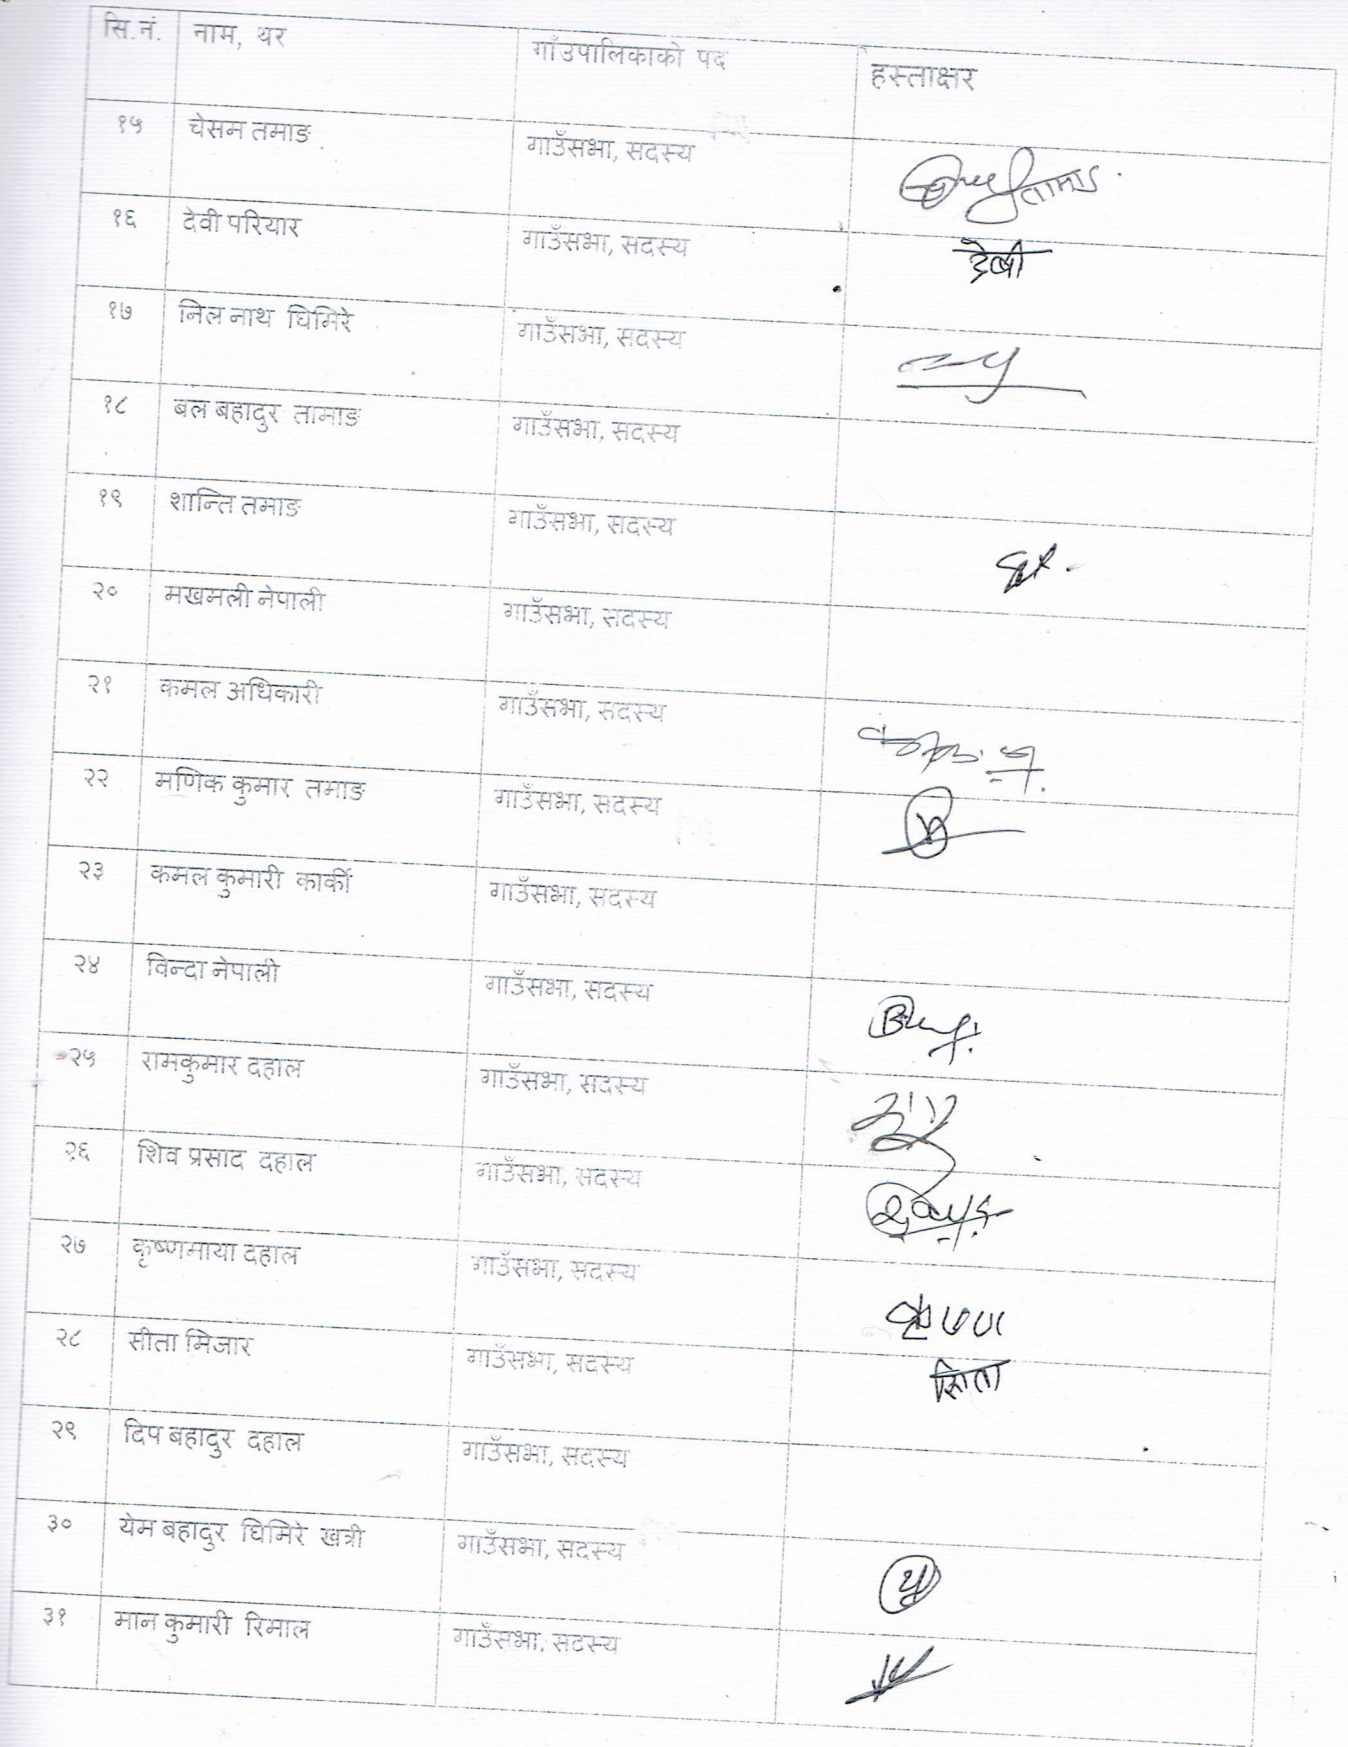 सि.नं. नाम, थर गाँउपालिकाको पद हस्ताक्षर
१५ चेसम तमाङ गाउँसभा, सदस्य तामाङ
१६ देवी परियार गाउँसभा, सदस्य देवी
१७ निल नाथ घिमिरे गाउँसभा, सदस्य
१८ बल बहादुर तामाङ गाउँसभा, सदस्य
१९ शान्ति तमाङ गाउँसभा, सदस्य
२० मखमली नेपाली गाउँसभा, सदस्य
२१ कमल अधिकारी गाउँसभा, सदस्य
२२ मणिक कुमार तमाङ गाउँसभा, सदस्य
२३ कमल कुमारी कार्की गाउँसभा, सदस्य
२४ विन्दा नेपाली गाउँसभा, सदस्य
२५ रामकुमार दहाल गाउँसभा, सदस्य
२६ शिव प्रसाद दहाल गाउँसभा, सदस्य
२७ कृष्णमाया दहाल गाउँसभा, सदस्य कृष्ण
२८ सीता मिजार गाउँसभा, सदस्य सिता
२९ दिप बहादुर दहाल गाउँसभा, सदस्य
३० येम बहादुर घिमिरे खत्री गाउँसभा, सदस्य
३१ मान कुमारी रिमाल गाउँसभा, सदस्य